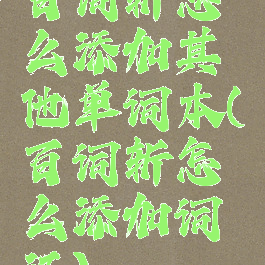 百词新怎
么添加其
他单词本(
百词新怎
么添加词
汇)